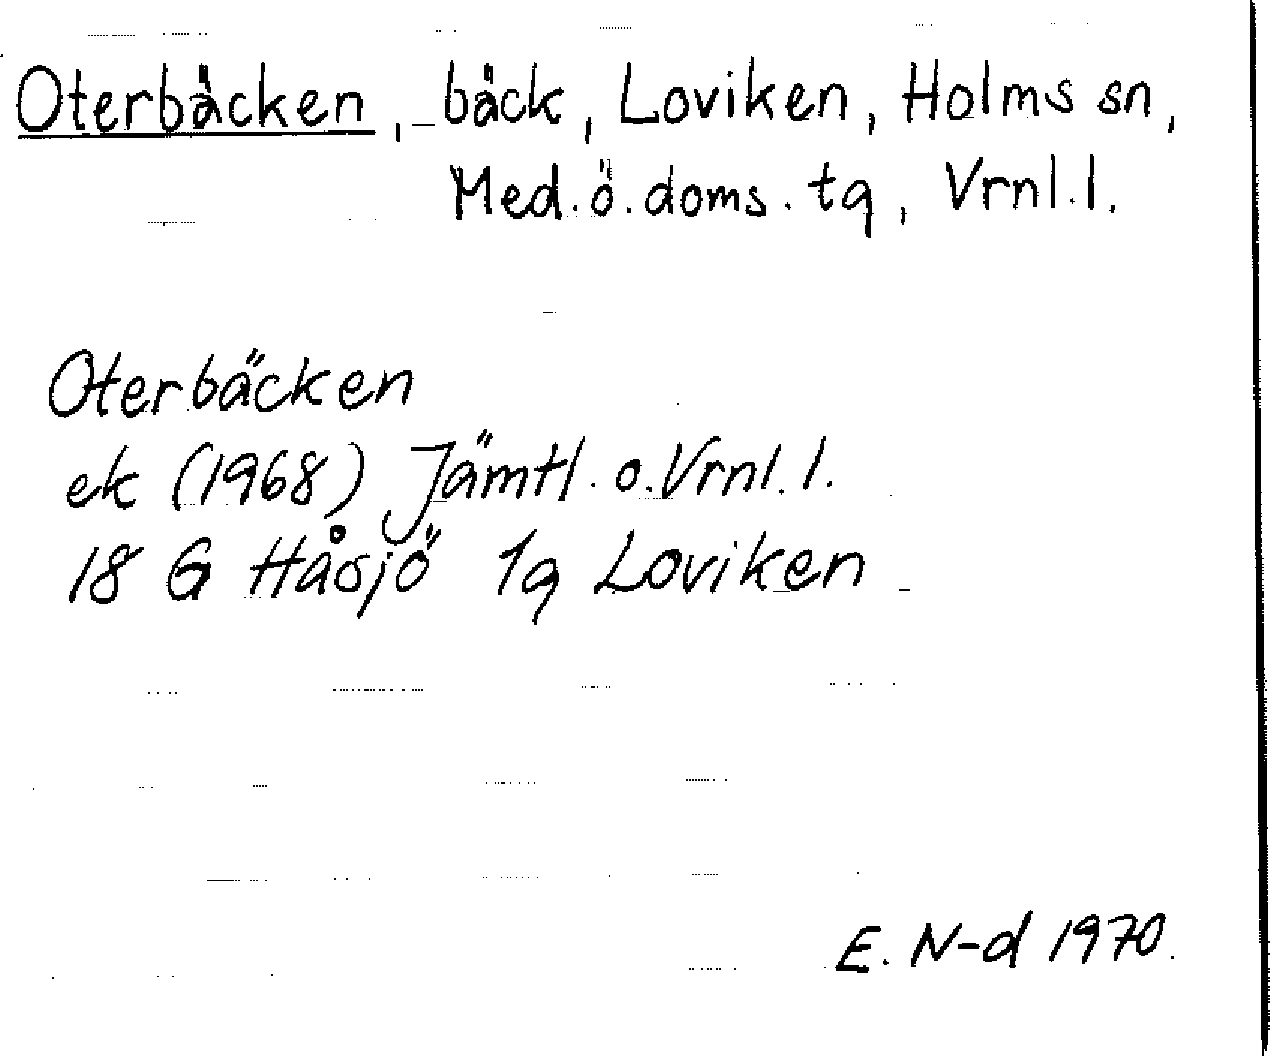 Oterbäcken, bäck, Loviken, Holms sn,
Med. ö. doms. tg, Vrnl. l.
Oterbäcken
ek (1968) Jämtl. o. Vrnl. l.
18 G Håsjö 1g Loviken
E. N-d 1970.